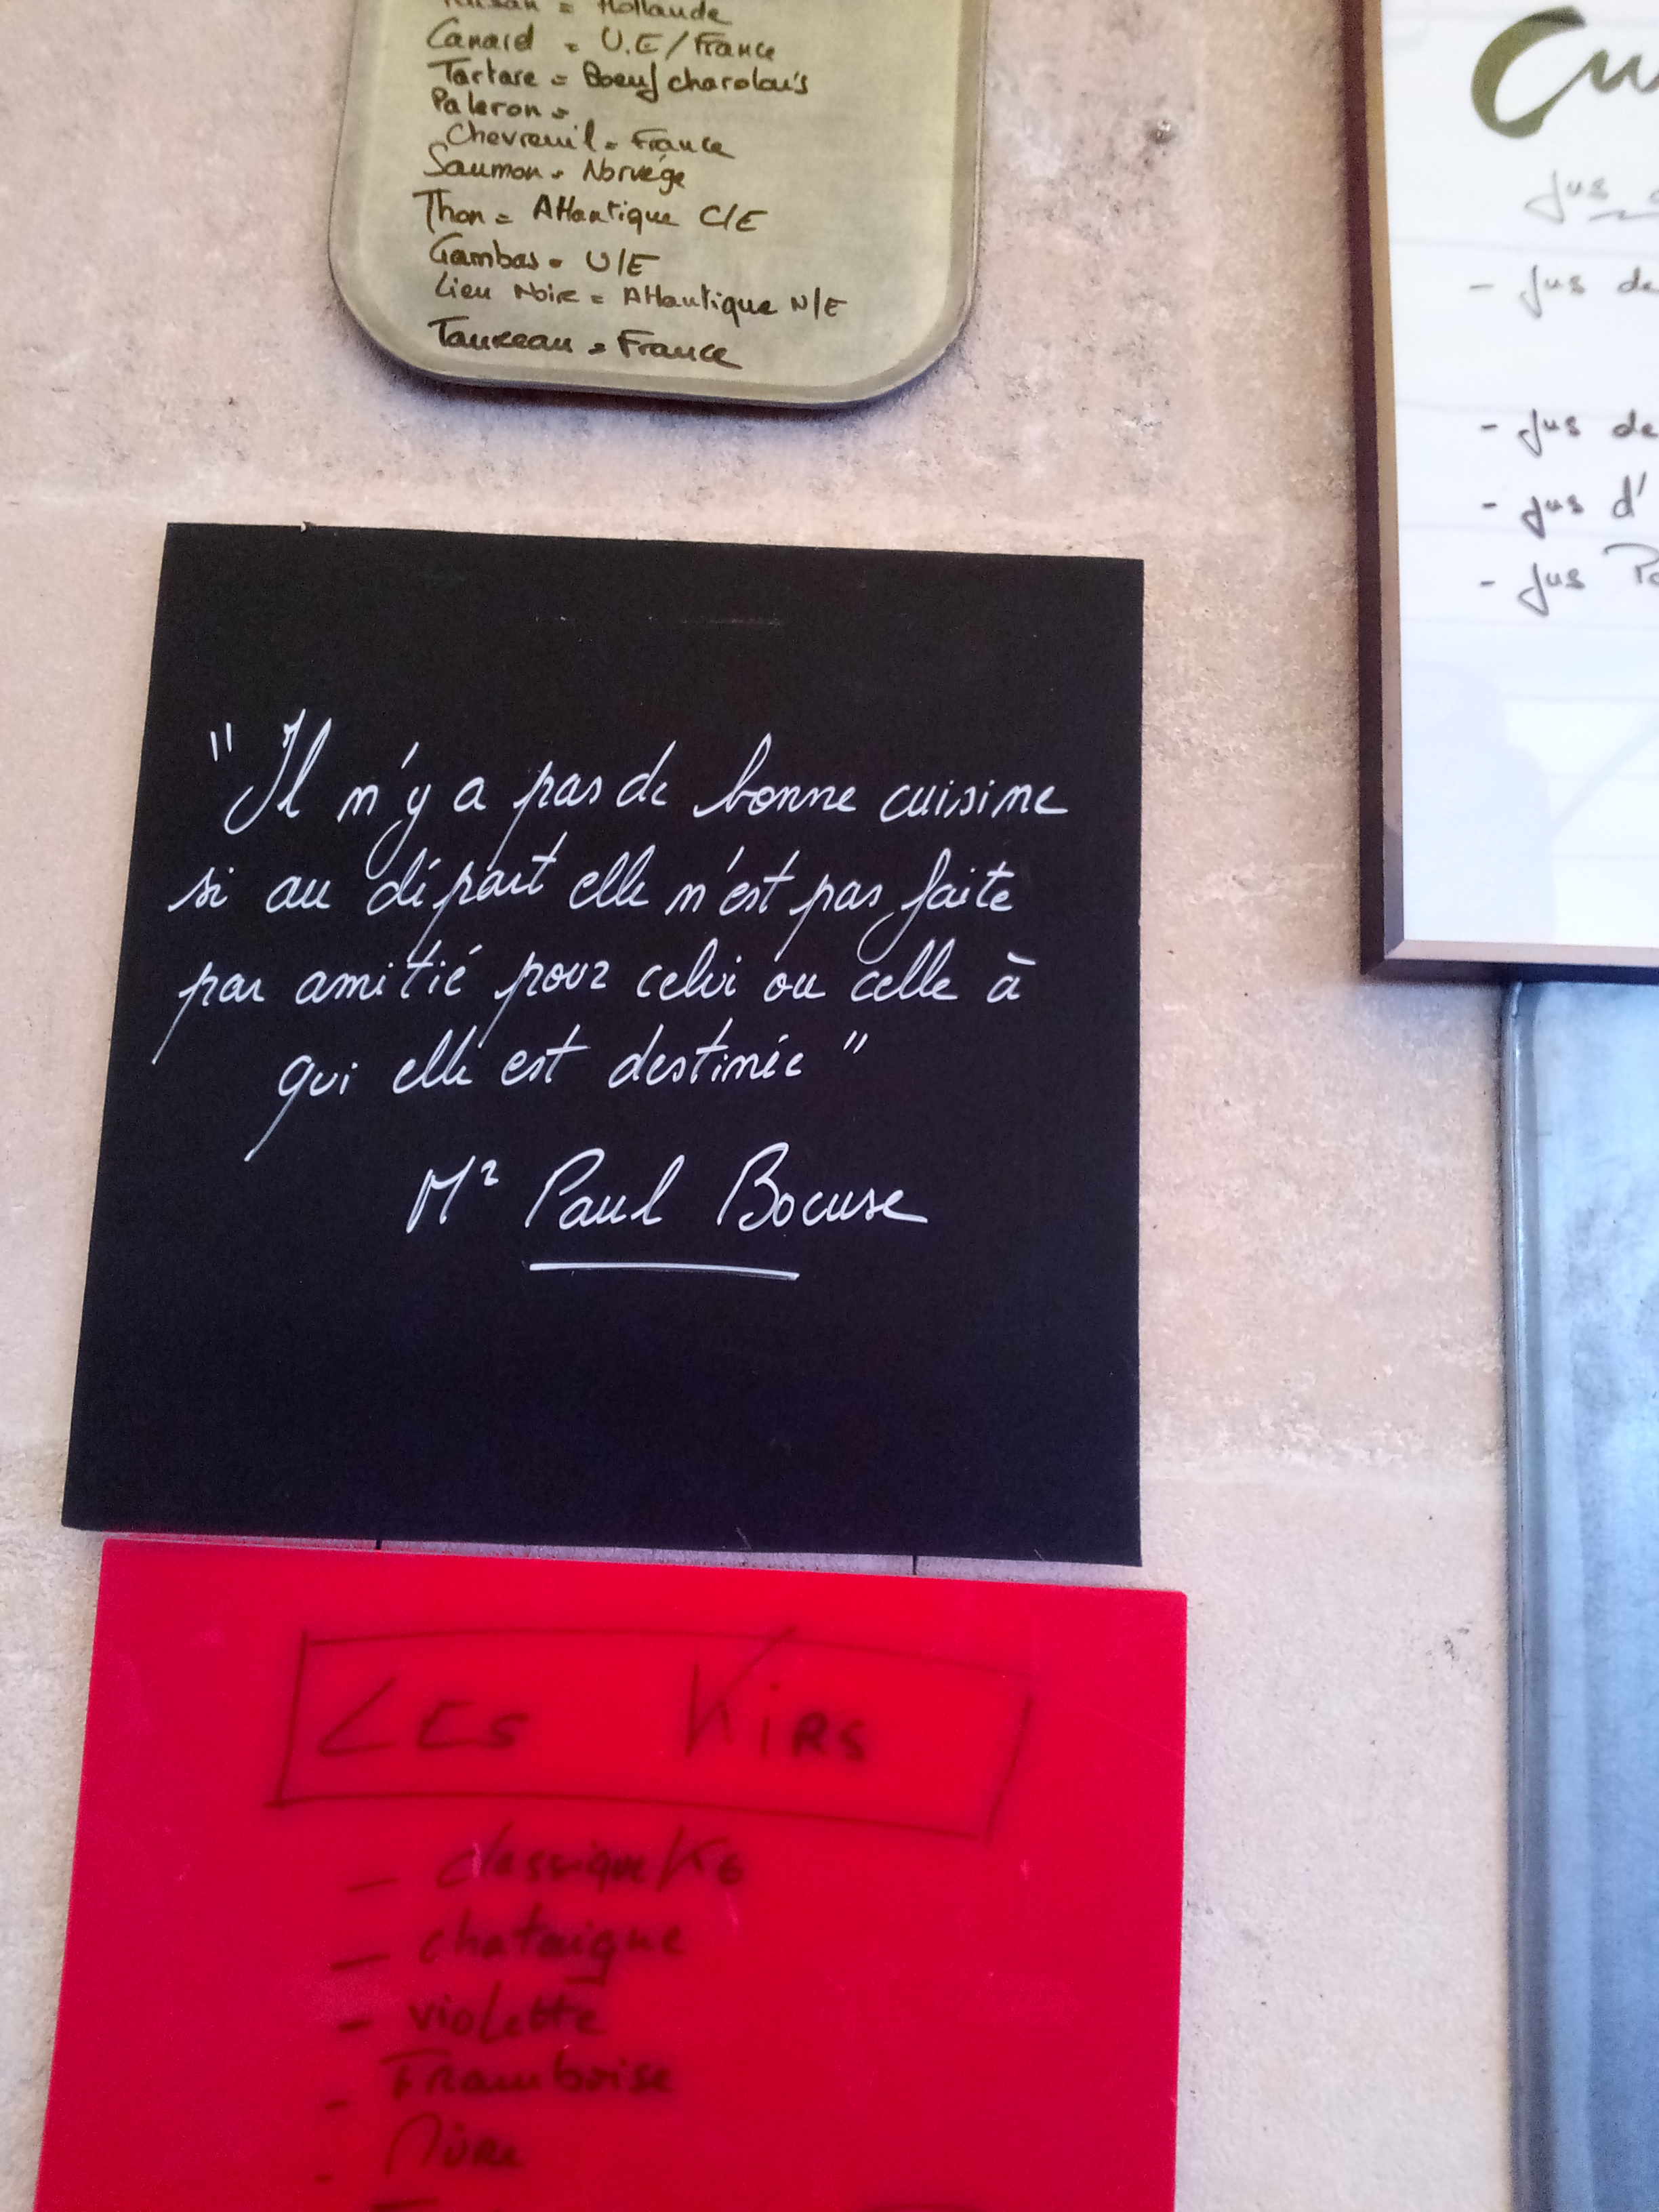 = Hollande
Canard = U.E/France
Tartare = Boeuf charolais
Paleron =
Chevreuil = France
Saumon = Norvège
Thon = Atlantique C/E
Gambas = U/E
Lieu Noir = Atlantique N/E
Taureau = France
"Il n'y a pas de bonne cuisine
si au départ elle n'est pas faite
par amitié pour celui ou celle à
qui elle est destinée"
Mr Paul Bocuse
LES KIRS
- classique
- chataigne
- violette
- Framboise
- Mûre
jus
- jus de
- jus de
- jus d'
- jus